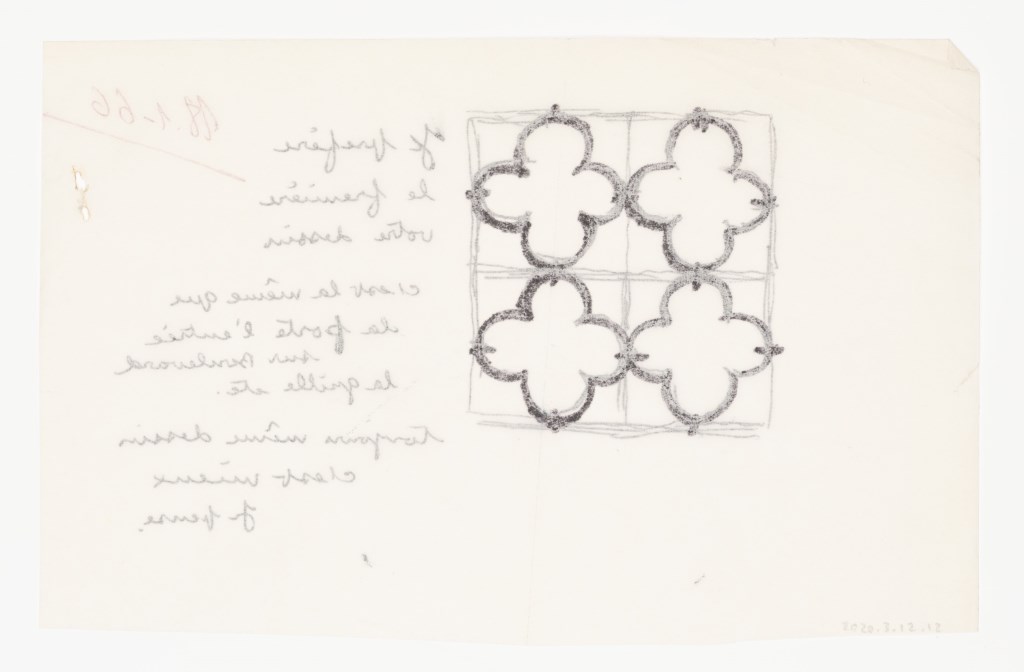 98.1-66
Je prefère
le première
votre dessin
c'est la même que
la porte l'entrée
sur Boulevard
la grille etc.
toujours même dessin
c'est mieux
Je pense.